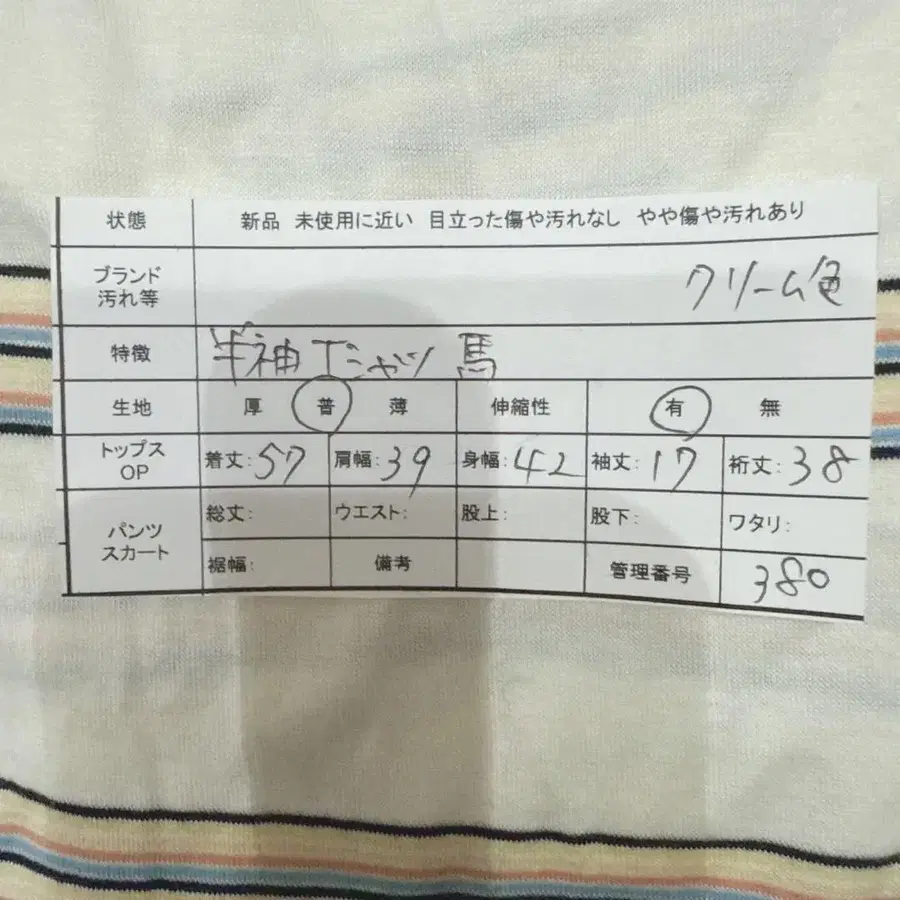 状態 新品 未使用に近い 目立った傷や汚れなし やや傷や汚れあり
ブランド
汚れ等 クリーム色
特徴 半袖Tシャツ 馬
生地 厚 普 薄 伸縮性 有 無
トップス
OP 着丈:57 肩幅:39 身幅:42 袖丈:17 裄丈:38
パンツ
スカート 総丈: ウエスト: 股上: 股下: ワタリ:
裾幅: 備考 管理番号 380